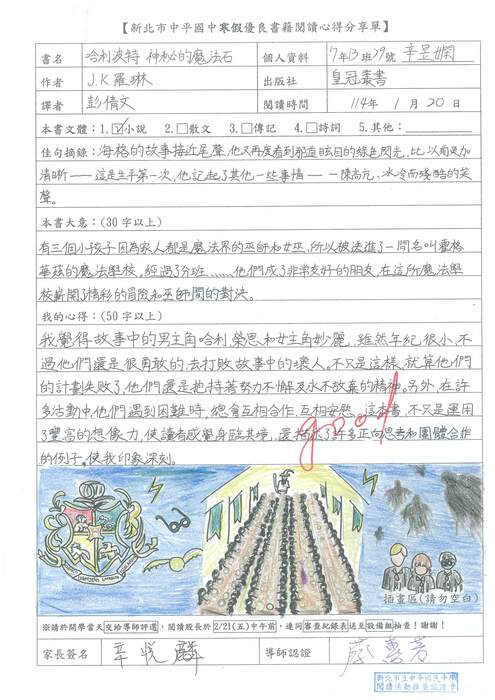 【新北市中平國中寒假優良書籍閱讀心得分享單】
書名 哈利波特 神秘的魔法石 個人資料 7年13班29號 辛昱嫻
作者 J.K羅琳 出版社 皇冠叢書
譯者 彭倩文 閱讀時間 114年 1月 20日
本書文體：1.☑小說 2.□散文 3.□傳記 4.□詩詞 5.其他：
佳句摘錄：海格的故事接近尾聲,他又再度看到那道眩目的綠色閃光,比以前更加
清晰——這是生平第一次,他記起了其他一些事情——一陣高亢、冰冷而殘酷的笑
聲。
本書大意：(30字以上)
有三個小孩子因為家人都是魔法界的巫師和女巫,所以被送進了一間名叫霍格
華茲的魔法學校,經過了分班……他們成了非常友好的朋友,在這所魔法學
校嶄開了精彩的冒險和巫師間的對決。
我的心得：(50字以上)
我覺得故事中的男主角哈利,榮恩和女主角妙麗,雖然年紀很小,不
過他們還是很勇敢的,去打敗故事中的壞人。不只是這樣,就算他們
的計劃失敗了,他們還是抱持著努力不懈及永不放棄的精神。另外,在許
多活動中,他們遇到困難時,總會互相合作,互相安慰。這本書,不只是運用
了豐富的想像力,使讀者感覺身臨其境,還描求了許多正向思考和團體合作
的例子。使我印象深刻。
good
插畫區(請勿空白)
※請於開學當天交給導師評選,閱讀股長於2/21(五)中午前,連同審查紀錄表送至設備組抽查！謝謝！
家長簽名 辛悅麟 導師認證 蔡喜芳
新北市立中平國民中學
閱讀活動推展認證會